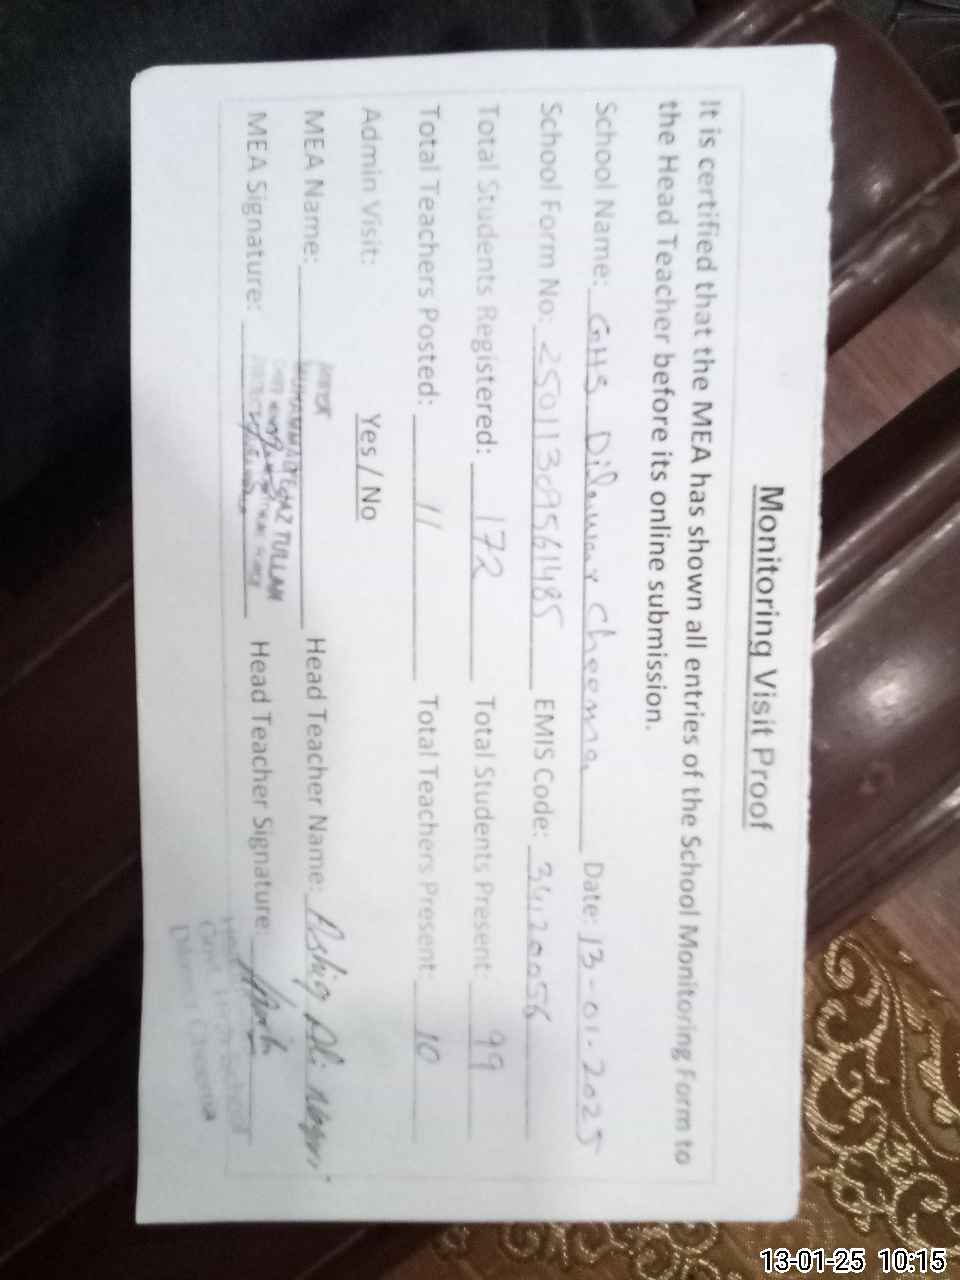 Monitoring Visit Proof
It is certified that the MEA has shown all entries of the School Monitoring Form to
the Head Teacher before its online submission.
School Name: GHS Dilawar Cheema Date: 13-01-2025
School Form No: 25011309561485 EMIS Code: 34120056
Total Students Registered: 172 Total Students Present: 99
Total Teachers Posted: 11 Total Teachers Present: 10
Admin Visit: Yes / No
MEA Name: Head Teacher Name: Ashiq Ali
MEA Signature: Head Teacher Signature:
13-01-25 10:15